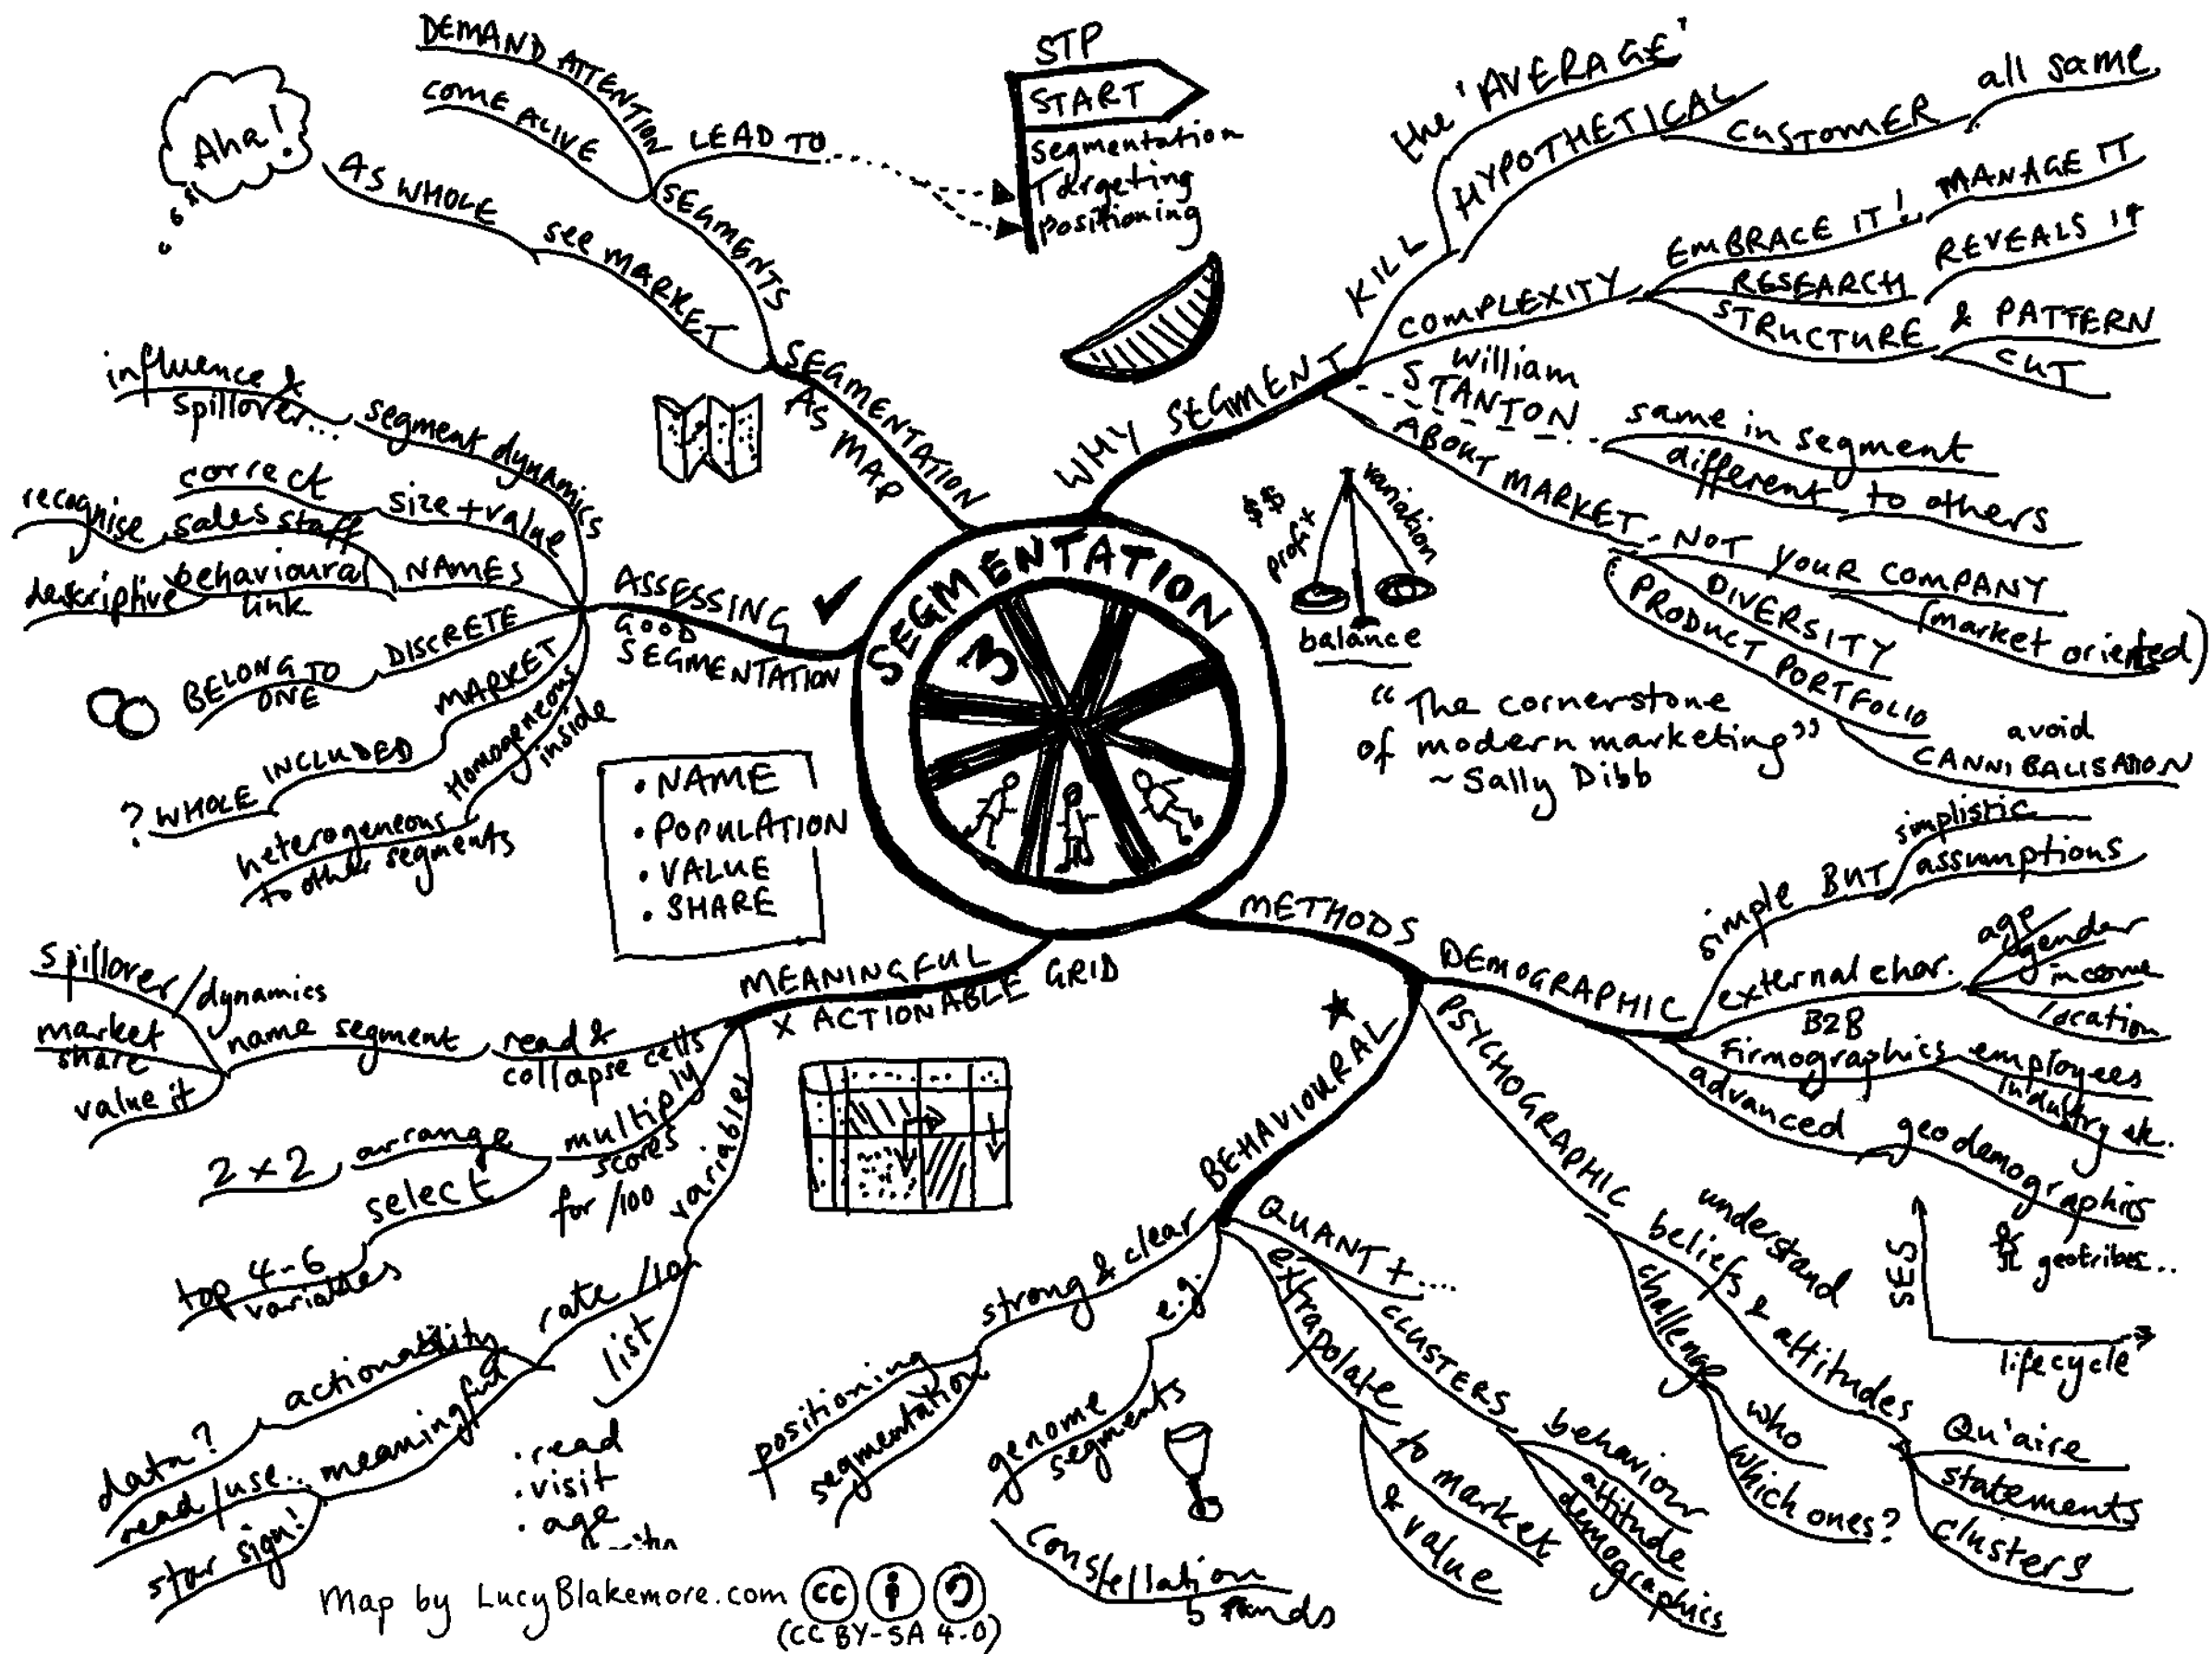 SEGMENTATION
3
SEGMENTATION
AS MAP
SEGMENTS
DEMAND ATTENTION
COME ALIVE
LEAD TO
see MARKET
AS WHOLE
Aha!
STP
START
Segmentation
Targeting
Positioning
WHY SEGMENT
KILL
the 'AVERAGE'
HYPOTHETICAL
CUSTOMER
all same
COMPLEXITY
EMBRACE IT!
MANAGE IT
RESEARCH
REVEALS IT
STRUCTURE & PATTERN
CUT
William
STANTON
same in segment
different to others
ABOUT MARKET - NOT YOUR COMPANY
(market oriented)
DIVERSITY
PRODUCT PORTFOLIO
avoid
CANNIBALISATION
$$
profit
variation
balance
"The cornerstone
of modern marketing"
~ Sally Dibb
METHODS
DEMOGRAPHIC
simple BUT
simplistic
assumptions
external char.
age/
gender
income
location
B2B
Firmographics
employees
industry etc.
advanced
geodemographics
& geotribes...
SES
lifecycle
PSYCHOGRAPHIC
understand
beliefs & attitudes
Qu'aire
statements
clusters
challenge
who
which ones?
BEHAVIOURAL
QUANT +....
CLUSTERS
behaviour
attitude
demographics
extrapolate
to market
& value
e.g.
genome
segments
Constellation
strong & clear
positioning
segmentation
MEANINGFUL
X ACTIONABLE GRID
read &
collapse cells
name segment
spillover/dynamics
market
share
value it
multiply
scores
for /100
arrange
2 x 2
select
top 4-6
variables
variables
rate /10
actionability
data?
meaningful
read/use...
star sign!
list
• read
• visit
• age
ASSESSING
GOOD
SEGMENTATION
segment dynamics
influence &
spillover...
size + value
correct
NAMES
sales staff
recognise
behavioural
link
descriptive
DISCRETE
BELONG TO
ONE
MARKET
WHOLE INCLUDED
?
Homogeneous
inside
heterogeneous
to other segments
• NAME
• POPULATION
• VALUE
• SHARE
Map by LucyBlakemore.com
cc
(CC BY-SA 4.0)